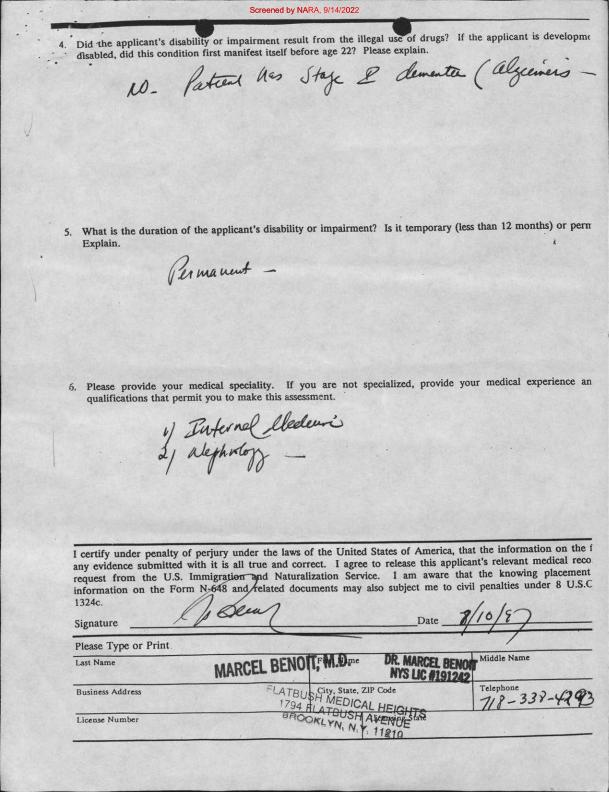 Screened by NARA, 9/14/2022
4. Did the applicant's disability or impairment result from the illegal use of drugs? If the applicant is developme
disabled, did this condition first manifest itself before age 22? Please explain.
NO- Patient has Stage dementia (Alzeimers -
5. What is the duration of the applicant's disability or impairment? Is it temporary (less than 12 months) or perm
Explain.
Permanent -
6. Please provide your medical speciality. If you are not specialized, provide your medical experience an
qualifications that permit you to make this assessment.
1) Internal Medecine
2) Nephrology -
I certify under penalty of perjury under the laws of the United States of America, that the information on the f
any evidence submitted with it is all true and correct. I agree to release this applicant's relevant medical reco
request from the U.S. Immigration and Naturalization Service. I am aware that the knowing placement
information on the Form N-648 and related documents may also subject me to civil penalties under 8 U.S.C
1324c.
Signature Date 8/10/97
Please Type or Print
Last Name MARCEL BENOIT, M.D. DR. MARCEL BENOIT Middle Name
NYS LIC #191242
Business Address City, State, ZIP Code Telephone
FLATBUSH MEDICAL HEIGHTS 718-338-4293
1794 FLATBUSH AVENUE
License Number BROOKLYN, N.Y. 11210